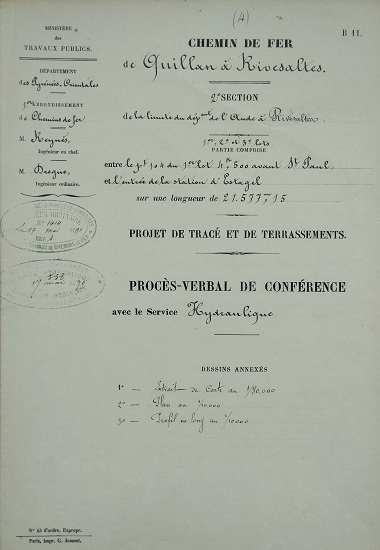 (4)
B 11.
MINISTÈRE
des
TRAVAUX PUBLICS.
DÉPARTEMENT
des Pyrénées Orientales
1er ARRONDISSEMENT
de Chemins de fer
M.
Ingénieur en chef.
M.
Ingénieur ordinaire.
CHEMIN DE FER
de Quillan à Rivesaltes.
2e SECTION
de la limite du dépmt de l'Aude à Rivesaltes
1er, 2e et 3e lots
PARTIE COMPRISE
entre le du 1er lot 500 avant St Paul
et l'entrée de la station d'Estagel
sur une longueur de 21.577,15
PROJET DE TRACÉ ET DE TERRASSEMENTS.
PROCÈS-VERBAL DE CONFÉRENCE
avec le Service Hydraulique
DESSINS ANNEXÉS
1º — Extrait de Carte au 1/80.000
2º — Plan au 1/10000
3º — Profil en long au 1/10000
Nº 63 d'ordre. Expropr.
Paris, Impr. G. Jousset.